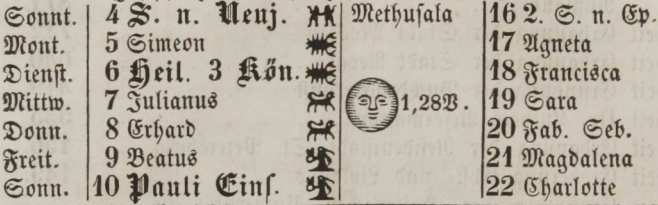 Sonnt. 4 S. n. Neuj. Methusala 16 2. S. n. Ep.
Mont. 5 Simeon 17 Agneta
Dienst. 6 Heil. 3 Kön. 18 Francisca
Mittw. 7 Julianus 1,28V. 19 Sara
Donn. 8 Erhard 20 Fab. Seb.
Freit. 9 Beatus 21 Magdalena
Sonn. 10 Pauli Eins. 22 Charlotte